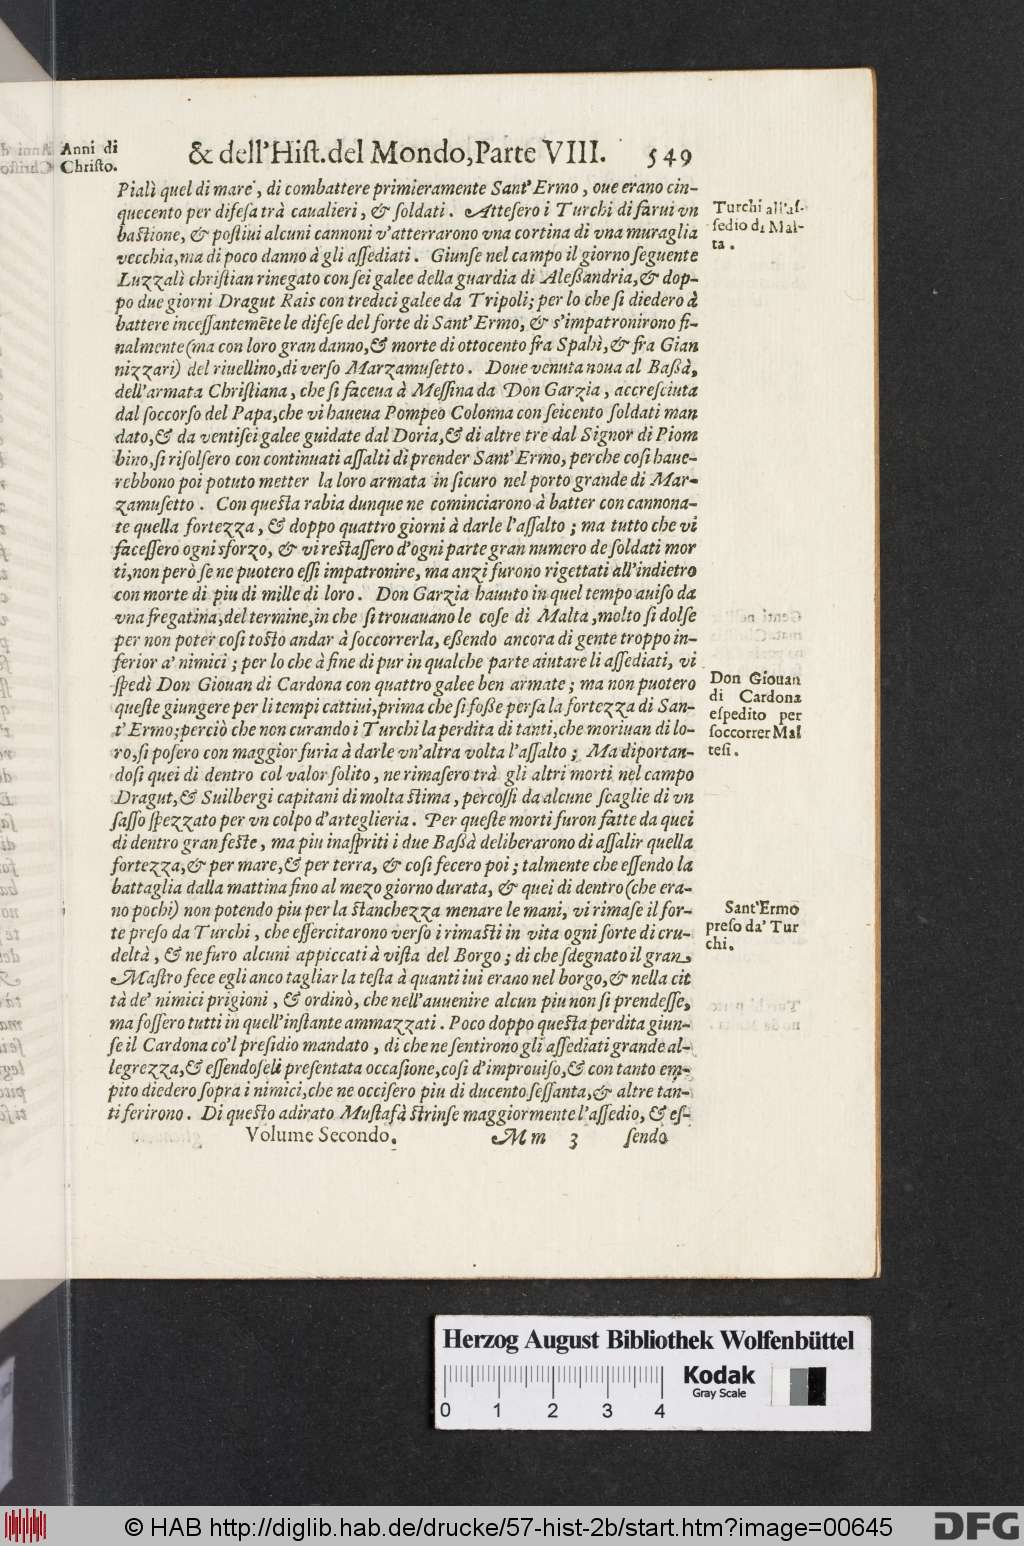 Anni di
Christo.
& dell'Hist. del Mondo, Parte VIII. 549
Pialì quel di mare, di combattere primieramente Sant' Ermo, oue erano cin-
quecento per difesa trà caualieri, & soldati. Attesero i Turchi di farui vn
bastione, & postiui alcuni cannoni v'atterrarono vna cortina di vna muraglia
vecchia, ma di poco danno à gli assediati. Giunse nel campo il giorno seguente
Luzzalì christian rinegato con sei galee della guardia di Alessandria, & dop-
po due giorni Dragut Rais con tredici galee da Tripoli; per lo che si diedero à
battere incessantemẽte le difese del forte di Sant' Ermo, & s'impatronirono fi-
nalmente (ma con loro gran danno, & morte di ottocento fra Spahì, & fra Gian
nizzari) del riuellino, di verso Marzamusetto. Doue venuta noua al Bassà,
dell'armata Christiana, che si faceua à Messina da Don Garzia, accresciuta
dal soccorso del Papa, che vi haueua Pompeo Colonna con seicento soldati man
dato, & da ventisei galee guidate dal Doria, & di altre tre dal Signor di Piom
bino, si risolsero con continuati assalti di prender Sant' Ermo, perche cosi haue-
rebbono poi potuto metter la loro armata in sicuro nel porto grande di Mar-
zamusetto. Con questa rabia dunque ne cominciarono à batter con cannona-
te quella fortezza, & doppo quattro giorni à darle l'assalto; ma tutto che vi
facessero ogni sforzo, & vi restassero d'ogni parte gran numero de soldati mor
ti, non però se ne puotero essi impatronire, ma anzi furono rigettati all'indietro
con morte di piu di mille di loro. Don Garzia hauuto in quel tempo auiso da
vna fregatina, del termine, in che si trouauano le cose di Malta, molto si dolse
per non poter cosi tosto andar à soccorrerla, essendo ancora di gente troppo in-
ferior a' nimici; per lo che à fine di pur in qualche parte aiutare li assediati, vi
spedì Don Giouan di Cardona con quattro galee ben armate; ma non puotero
queste giungere per li tempi cattiui, prima che si fosse persa la fortezza di San-
t' Ermo; perciò che non curando i Turchi la perdita di tanti, che moriuan di lo-
ro, si posero con maggior furia à darle vn'altra volta l'assalto; Ma diportan-
dosi quei di dentro col valor solito, ne rimasero trà gli altri morti nel campo
Dragut, & Suilbergi capitani di molta stima, percossi da alcune scaglie di vn
sasso spezzato per vn colpo d'arteglieria. Per queste morti furon fatte da quei
di dentro gran feste, ma piu inaspriti i due Bassà deliberarono di assalir quella
fortezza, & per mare, & per terra, & cosi fecero poi; talmente che essendo la
battaglia dalla mattina fino al mezo giorno durata, & quei di dentro (che era-
no pochi) non potendo piu per la stanchezza menare le mani, vi rimase il for-
te preso da Turchi, che essercitarono verso i rimasti in vita ogni sorte di cru-
deltà, & ne furo alcuni appiccati à vista del Borgo; di che sdegnato il gran
Mastro fece egli anco tagliar la testa à quanti iui erano nel borgo, & nella cit
tà de' nimici prigioni, & ordinò, che nell'auuenire alcun piu non si prendesse,
ma fossero tutti in quell'instante ammazzati. Poco doppo questa perdita giun-
se il Cardona co'l presidio mandato, di che ne sentirono gli assediati grande al-
legrezza, & essendoseli presentata occasione, cosi d'improuiso, & con tanto em-
pito diedero sopra i nimici, che ne occisero piu di ducento sessanta, & altre tan-
ti ferirono. Di questo adirato Mustafà strinse maggiormente l'assedio, & es-
Volume Secondo. Mm 3 sendo
Turchi all'as-
sedio di Mal-
ta.
Don Giouan
di Cardona
espedito per
soccorrer Mal
tesi.
Sant'Ermo
preso da' Tur
chi.
Herzog August Bibliothek Wolfenbüttel
Kodak
Gray Scale
0 1 2 3 4
© HAB http://diglib.hab.de/drucke/57-hist-2b/start.htm?image=00645
DFG